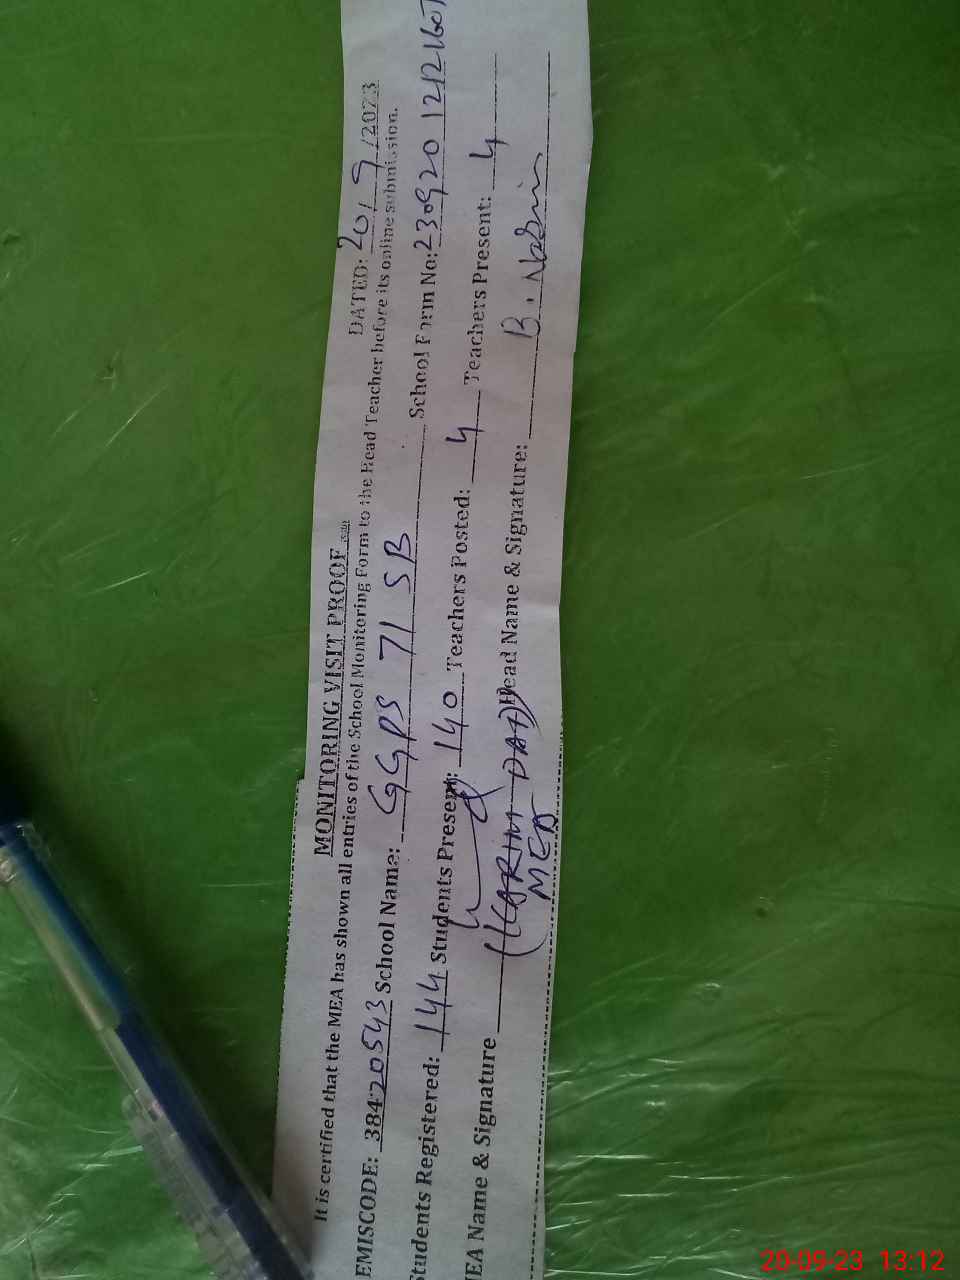 MONITORING VISIT PROOF
DATED: 20/9/2023
It is certified that the MEA has shown all entries of the School Monitoring Form to the Head Teacher before its online submission.
EMISCODE: 38420543 School Name: GGPS 71 SB School Form No: 23092012121607
Students Registered: 144 Students Present: 140 Teachers Posted: 4 Teachers Present: 4
MEA Name & Signature (KARIM DAD) Head Name & Signature: B. Nasrin
MEA
20-09-23 13:12